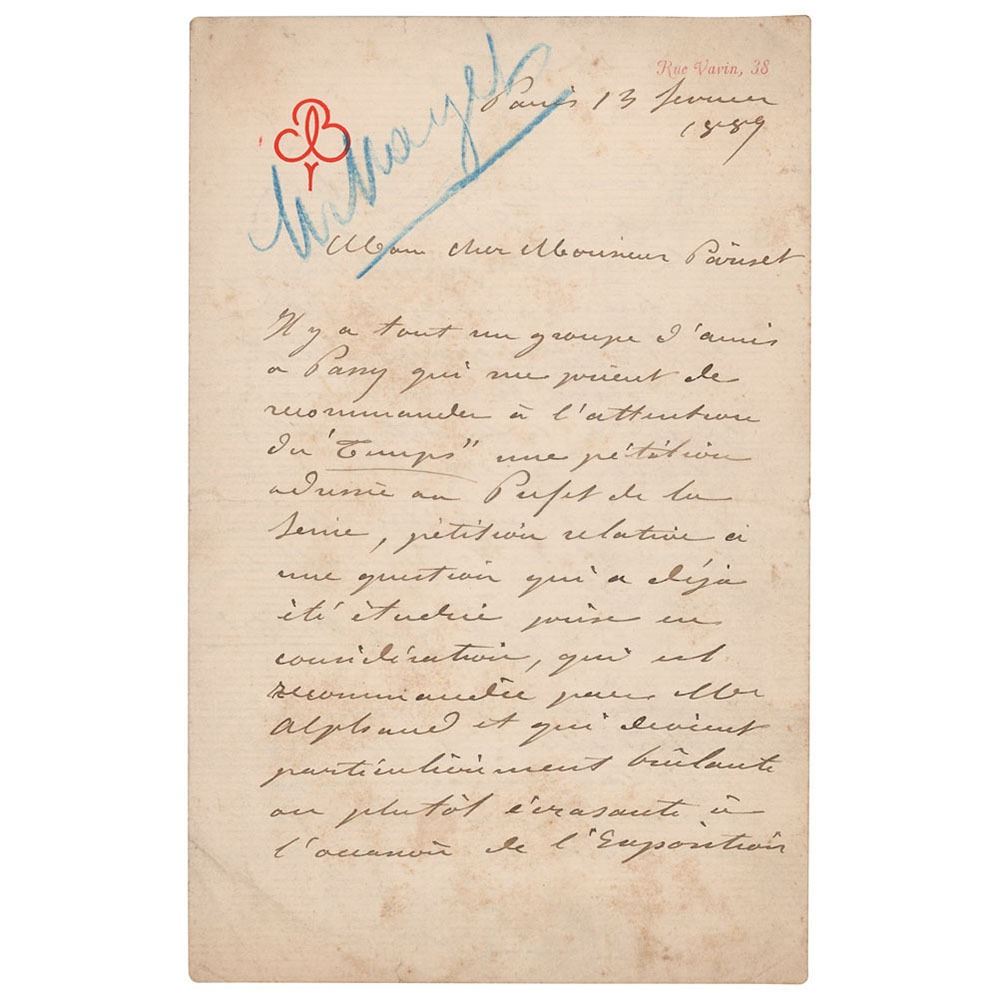 Rue Vavin, 38
Paris 13 fevrier
1889
Mr Mayet
Mon cher Monsieur Pariset
Il y a tout un groupe d'amis
a Passy qui me prient de
recommander à l'attention
du "Temps" une pétition
adressée au Prefet de la
Seine, pétition relative à
une question qui a déjà
été étudiée prise en
considération, qui est
recommandée par Mr
Alphand et qui devient
particulièrement brûlante
ou plutôt écrasante à
l'occasion de l'Exposition